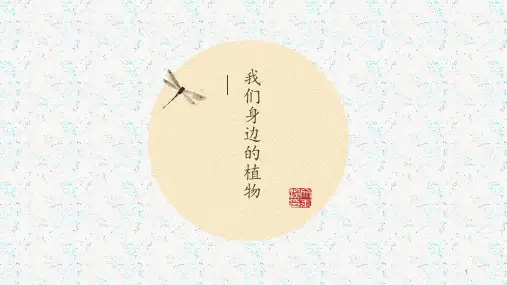 我们身边的植物
1